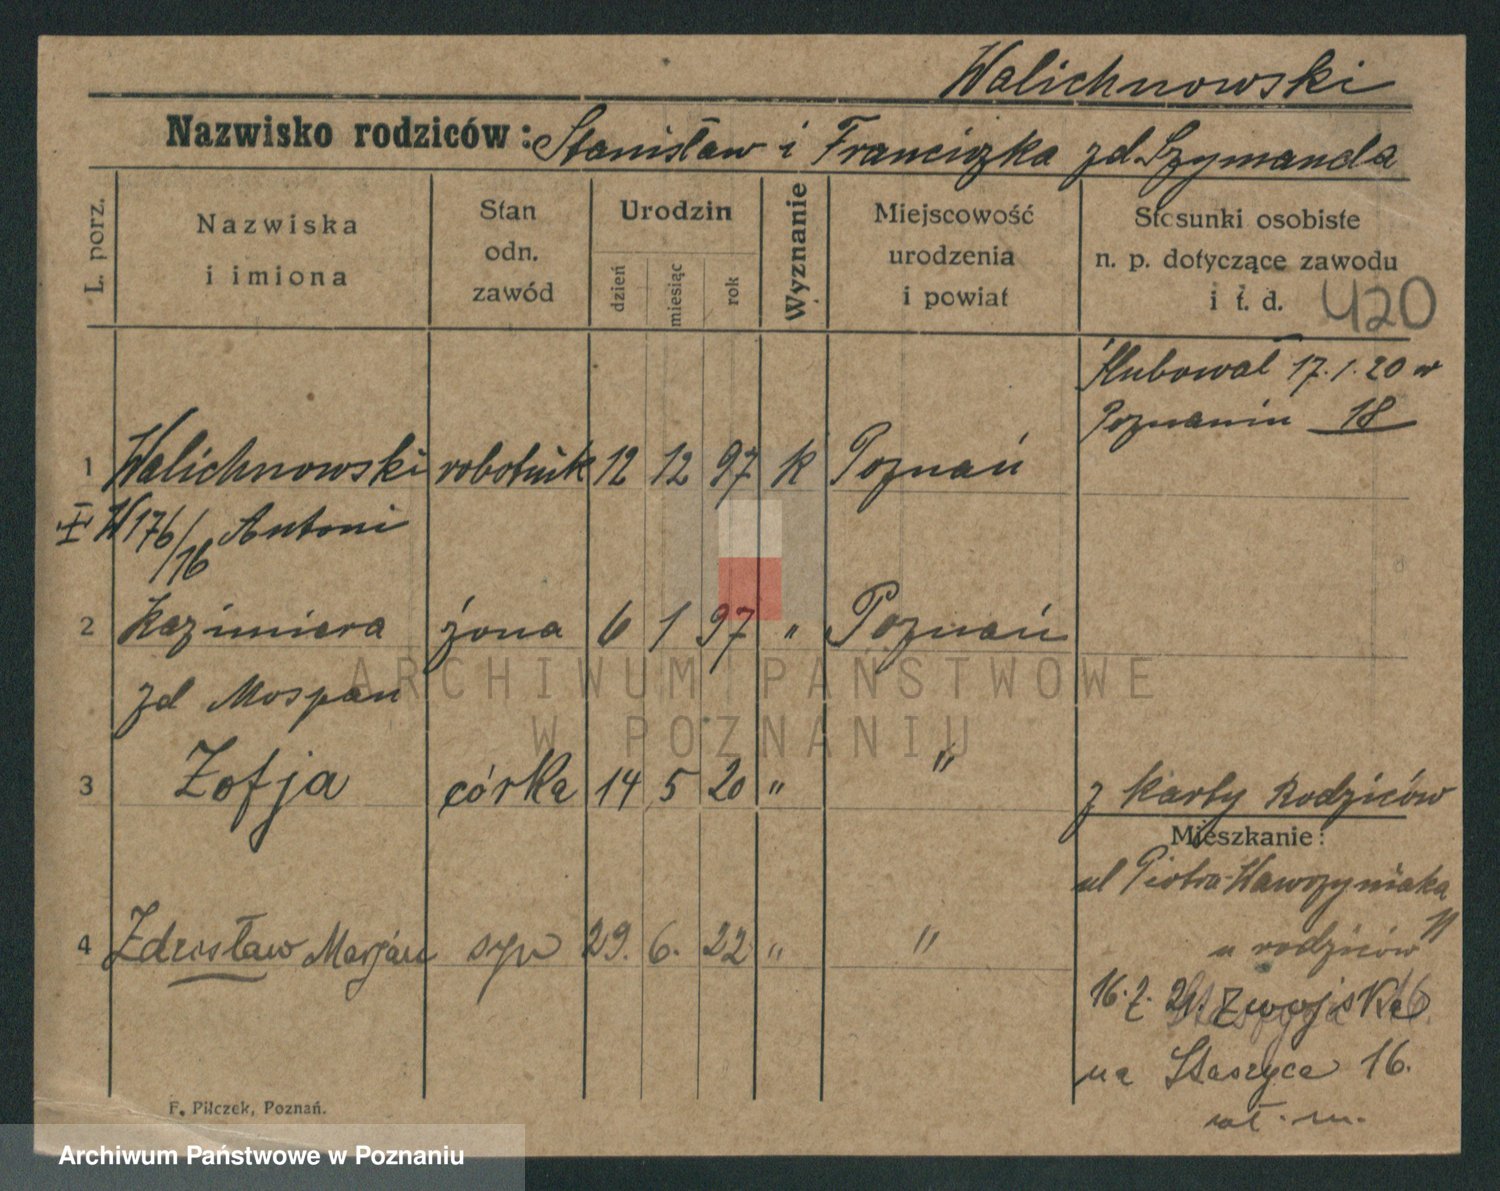 Walichnowski
Nazwisko rodziców: Stanisław i Franciszka zd. Szymanda
L. porz.
Nazwiska
i imiona
Stan
odn.
zawód
Urodzin
dzień
miesiąc
rok
Wyznanie
Miejscowość
urodzenia
i powiat
Stosunki osobiste
n. p. dotyczące zawodu
i t. d.
420
ślubował 17.1.20 w
Poznaniu 18
1 Walichnowski robotnik 12 12 97 k Poznań
W176/16 Antoni
2 Kazimiera żona 6 1 97 " Poznań
zd Mospan
3 Zofja córka 14 5 20 " "
z karty Rodziców
Mieszkanie:
ul Piotra Wawrzyniaka
11
u rodziców
4 Zdzisław Marjan syn 29. 6. 22 " "
16. 2. 21. z wojska
na Staszyca 16.
F. Pilczek, Poznań.
ARCHIWUM PAŃSTWOWE
W POZNANIU
Archiwum Państwowe w Poznaniu